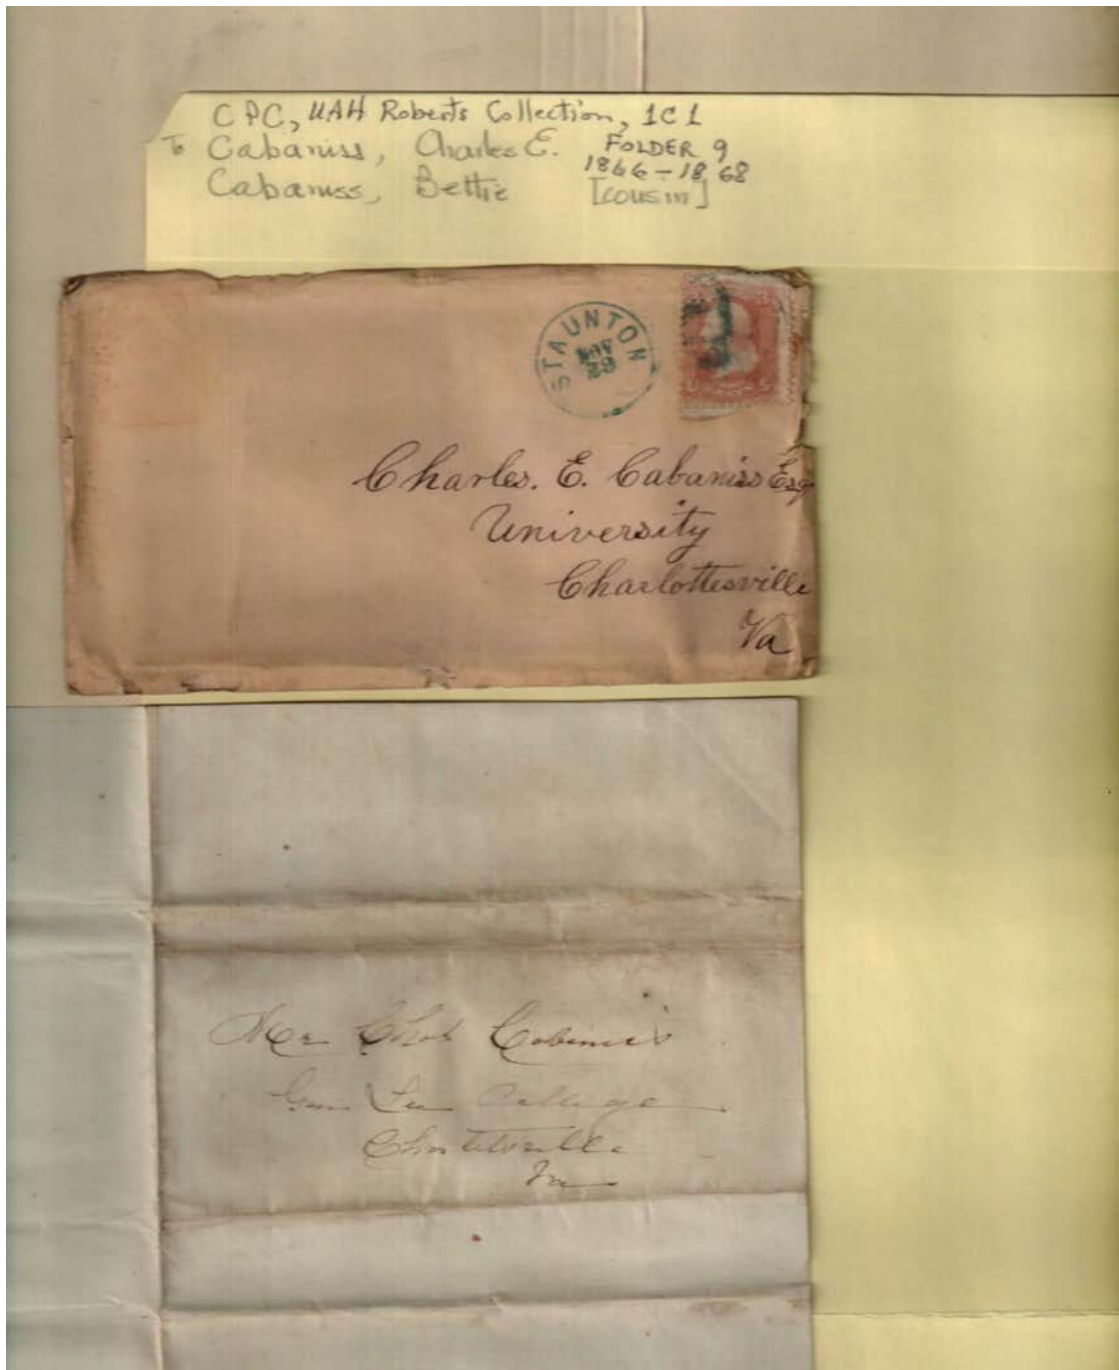 CPC, UAH Roberts Collection, 1C1
To Cabaniss, Charles E. FOLDER 9
1866-1868
Cabaniss, Bettie [cousin]
STAUNTON
NOV
29
Charles. E. Cabaniss Esq
University
Charlottesville
Va
Mr Chas Cabaniss
Gen Lee College
Va